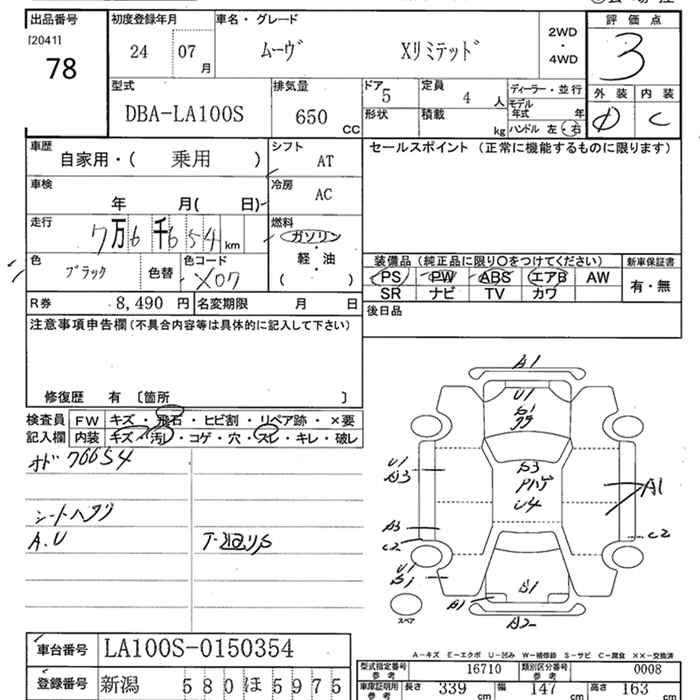 出品番号 初度登録年月 車名・グレード 2WD・4WD 評価点
[2041]
78 24 07月 ムーヴ Xリミテッド 3
型式 排気量 ドア 5 定員 4人 ディーラー・並行 外装 内装
DBA-LA100S 650CC 形状 積載 kg モデル年式 年 C
ハンドル 左・右
車歴 自家用・( 乗用 ) シフト AT セールスポイント (正常に機能するものに限ります)
車検 年 月( 日) 冷房 AC
走行 7万6千654km 燃料 ガソリン・軽油・( )
色 ブラック 色替 色コード X07 装備品(純正品に限り○をつけてください) 新車保証書
PS PW ABS エアB AW 有・無
SR ナビ TV カワ
R券 8,490円 名変期限 月 日 後日品
注意事項申告欄(不具合内容等は具体的に記入して下さい)
修復歴 有 〔箇所 〕
検査員 FW キズ・飛石・ヒビ割・リペア跡・×要
記入欄 内装 キズ・汚れ・コゲ・穴・スレ・キレ・破レ
76654
シートハゲリ
A.U
A1
U1
A1
C2
A1
A2
スペア
A-キズ E-エクボ U-凹み W-補修跡 S-サビ C-腐食 ××-交換済
車台番号 LA100S-0150354
登録番号 新潟 580 ほ 5975
型式指定番号 参考 16710 類別区分番号 参考 0008
車庫証明用 参考 長さ 339cm 幅 147cm 高さ 163cm